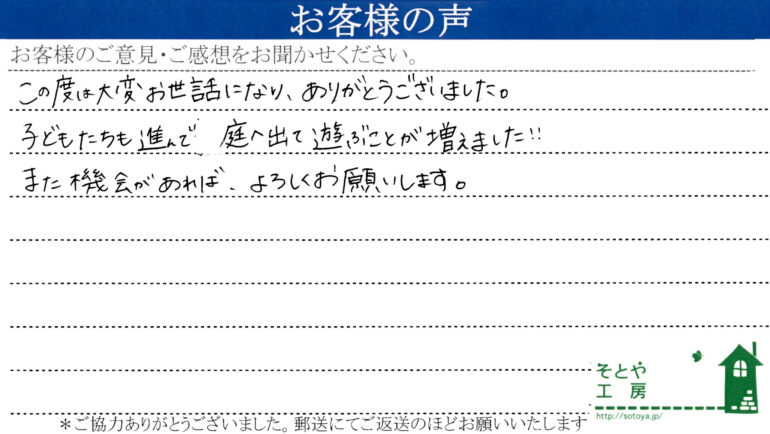 お客様の声
お客様のご意見・ご感想をお聞かせください。
この度は大変お世話になり、ありがとうございました。
子どもたちも進んで 庭へ出て遊ぶことが増えました!!
また機会があれば、よろしくお願いします。
そとや
工房
http://sotoya.jp/
＊ご協力ありがとうございました。郵送にてご返送のほどお願いいたします